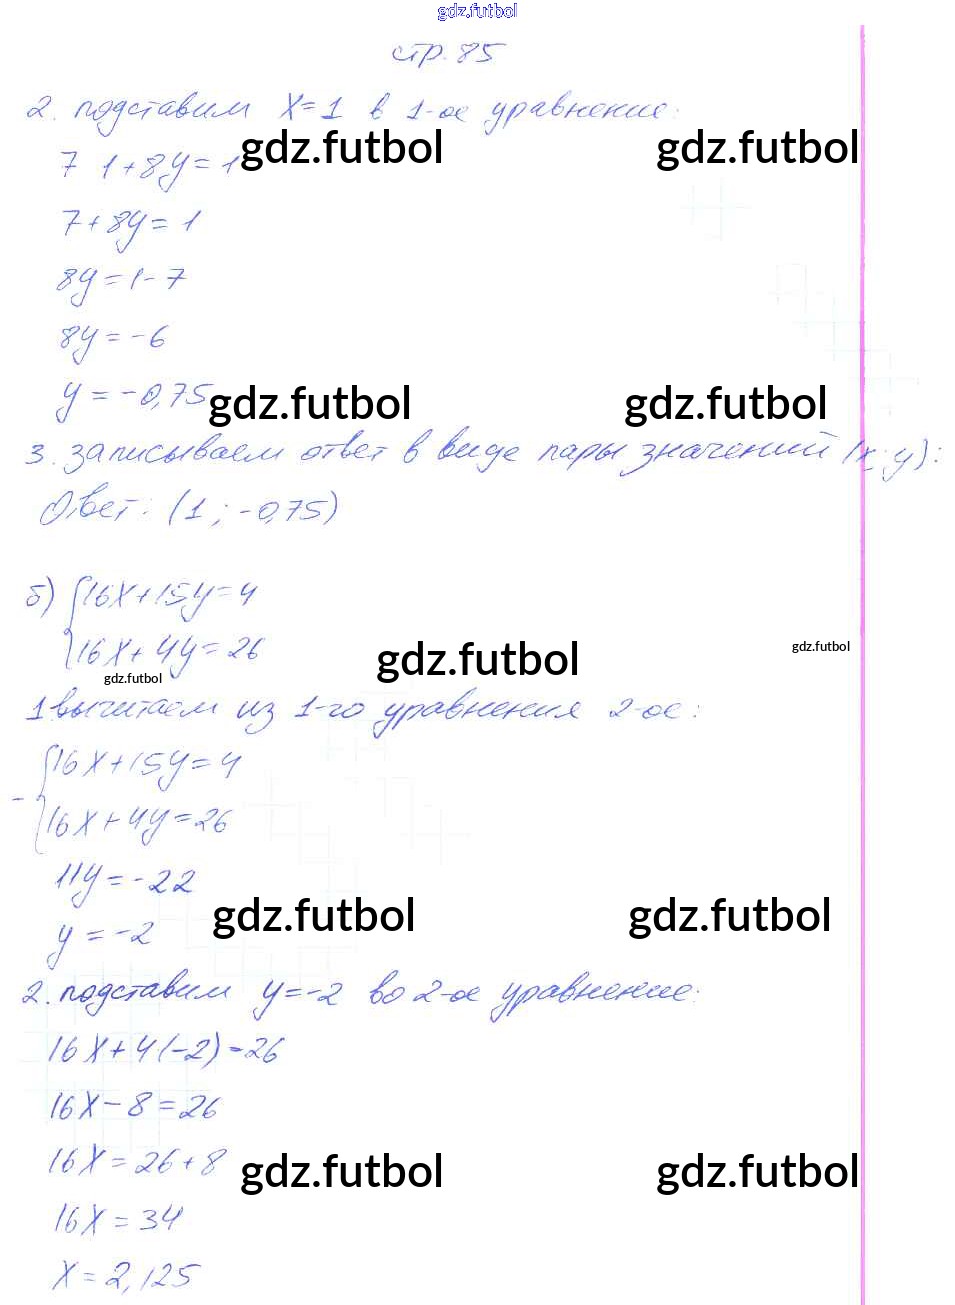 gdz.futbol
стр. 85
2. подставим X=1 в 1-ое уравнение:
gdz.futbol gdz.futbol
7 1+8y=1
7+8y=1
8y=1-7
8y=-6
y=-0,75
gdz.futbol gdz.futbol
3. записываем ответ в виде пары значений (x; y):
Ответ: (1; -0,75)
б) {16X+15y=4
16X+4y=26
gdz.futbol gdz.futbol
gdz.futbol
1. вычитаем из 1-го уравнения 2-ое:
- {16X+15y=4
16X+4y=26
11y=-22
gdz.futbol gdz.futbol
y=-2
2. подставим y=-2 во 2-ое уравнение:
16X+4(-2)=26
16X-8=26
16X=26+8
gdz.futbol gdz.futbol
16X=34
X=2,125